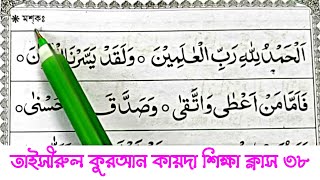 * মশ্‌কঃ
اَلْحَمْدُ لِلّٰهِ رَبِّ الْعٰلَمِيْنَ ○ وَلَقَدْ يَسَّرْنَا
فَاَمَّا مَنْ اَعْطٰى وَاتَّقٰى ○ وَصَدَّقَ
তাইসীরুল কুরআন কায়দা শিক্ষা ক্লাস ৩৮